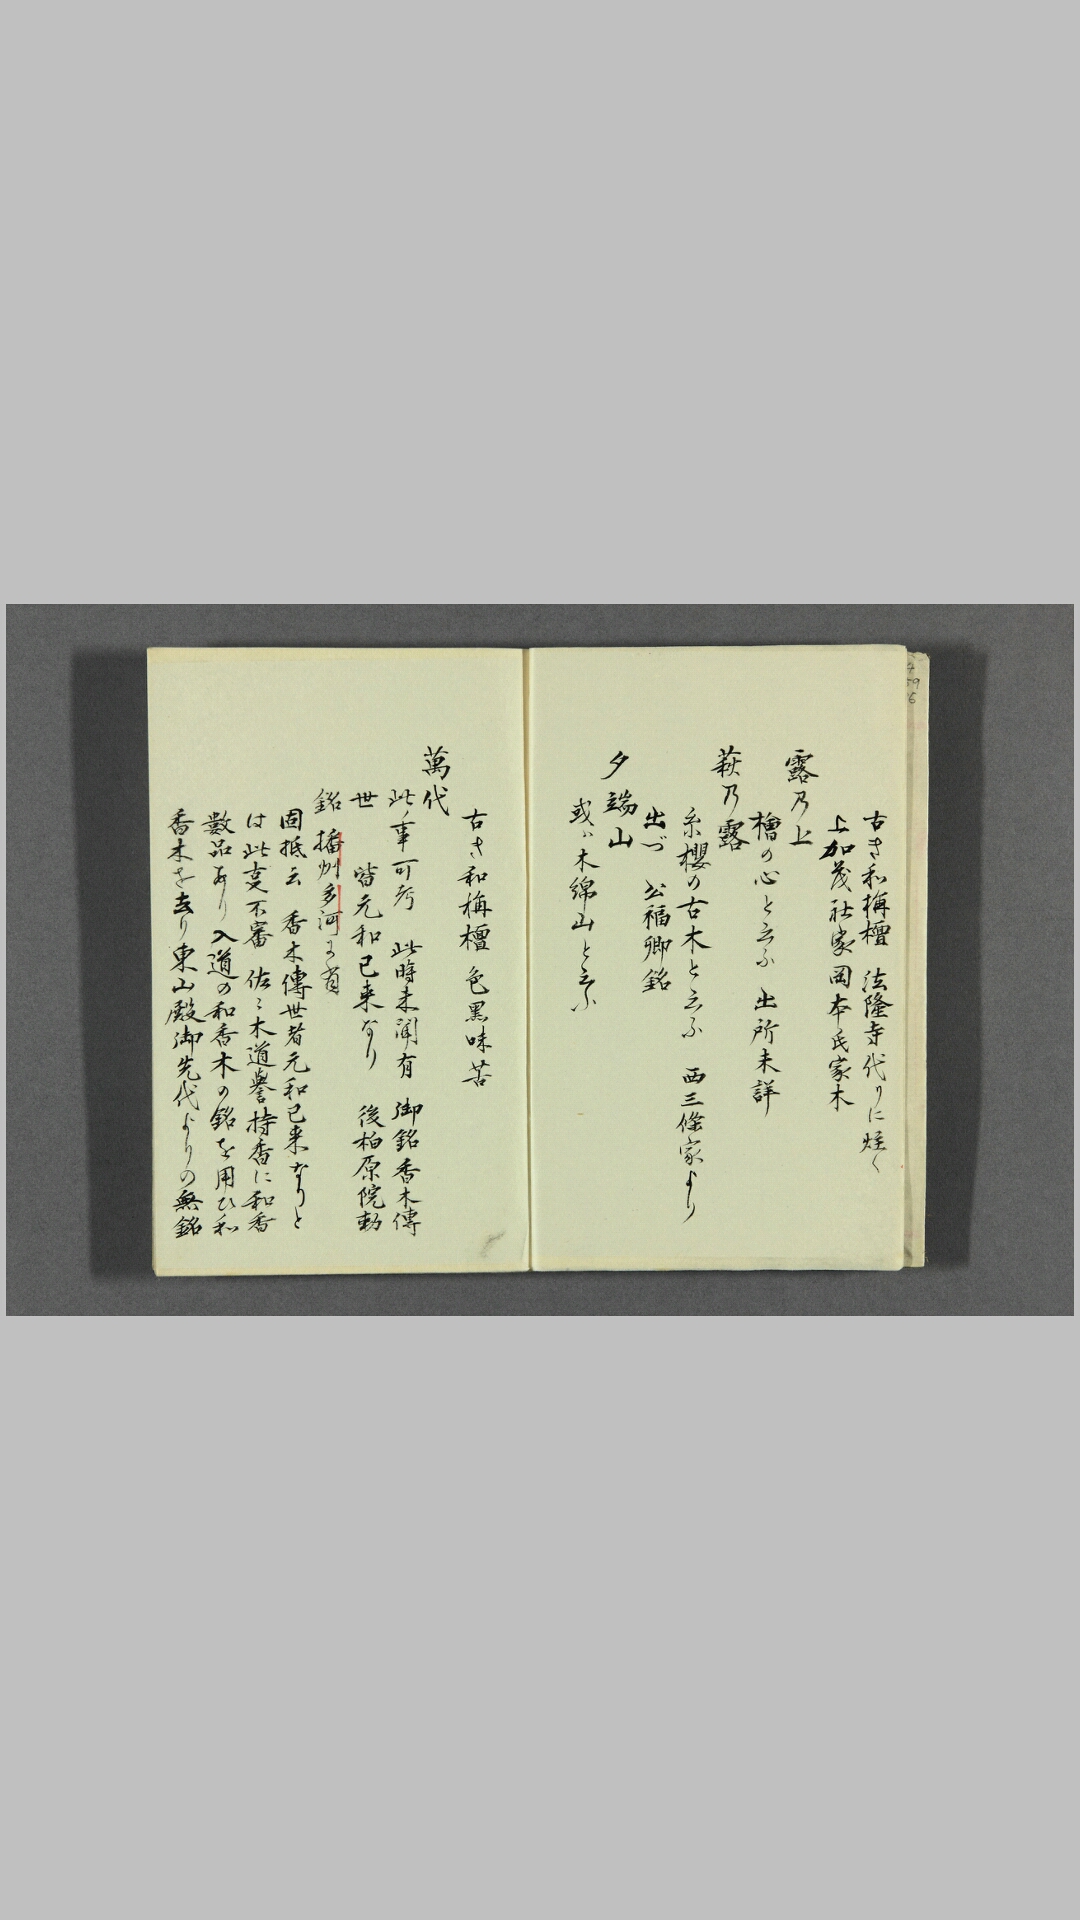 古き和栴檀　法隆寺代りに炷く
上加茂社家岡本氏家木
露乃上
檜の心と云ふ　出所未詳
萩乃露
糸櫻の古木と云ふ　西三條家より
出づ　公福卿銘
夕端山
或ハ木綿山と云ふ
古き和栴檀　色黒味苦
萬代
此ノ事可考　此時未聞有　御銘香木傳
世　皆元和已来なり　後柏原院勅
銘　播州多河ニ有
固抵云　香木傳世者元和已来なりと
は此㕝不審　佐々木道譽持香に和香
數品あり入道の和香木の銘を用ひ和
香木を去り東山殿御先代よりの無銘